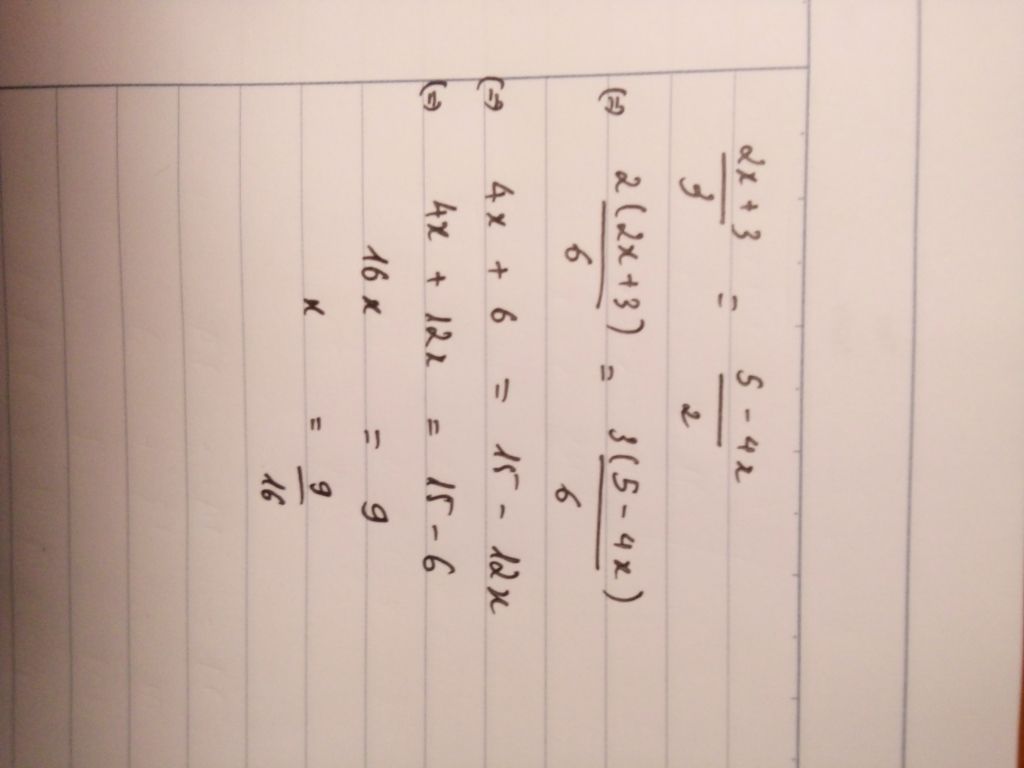 (2x + 3)/3 = (5 - 4x)/2
(=) 2(2x+3)/6 = 3(5-4x)/6
(=) 4x + 6 = 15 - 12x
(=) 4x + 12x = 15 - 6
16x = 9
x = 9/16